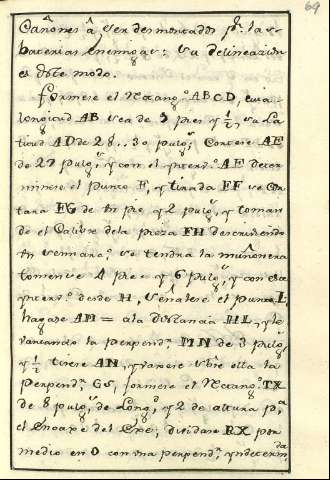 69
Cañones â ser desmontados pr. las
baterias enemigas: su delineacion
es deste modo.
formese el Rectango. ABCD, cuia
longitud AB sea de 5 pies y ½, su La
titud AD de 28.. 30 pulgs. Cortese AE
de 27 pulgs. y con el interv.o AE deter
minese el punto F, y tirada EF se Cor
tara FG de un pie y 2 pulgs. y toman
do el Calibre dela pieza FH descriviendo
un semizirc.o se tendra la muñonera
tomense 4 pies y 6 pulgs. y con este
interv.o desde H, señalese el punto L
hagase AM = ala distancia HL, y le
vantando la perpend.r MN de 3 pulgs.
y ½ tirese AN, y vaxese sobre ella la
perpend.r GS, formese el Rectang.o TX
de 8 pulgs. de Long.d y 2 de altura p.a
el encaxe del Exe; dividase RX por
medio en O con una perpend.r yndeterm.da